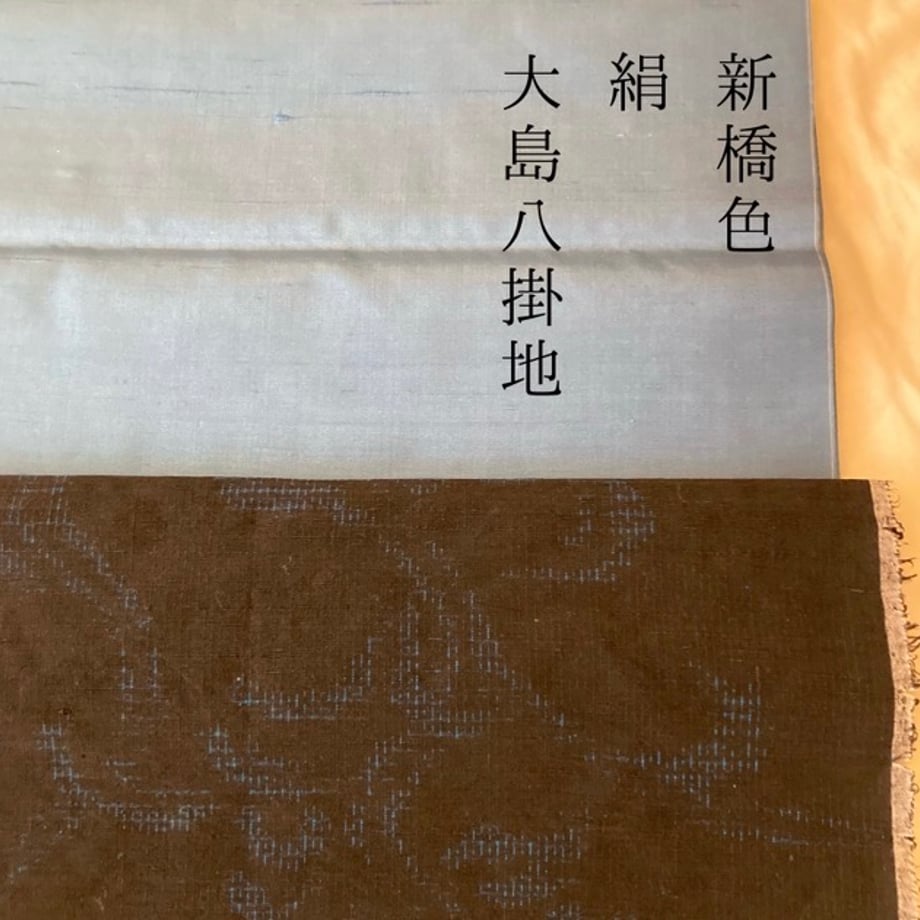 新橋色
絹
大島八掛地